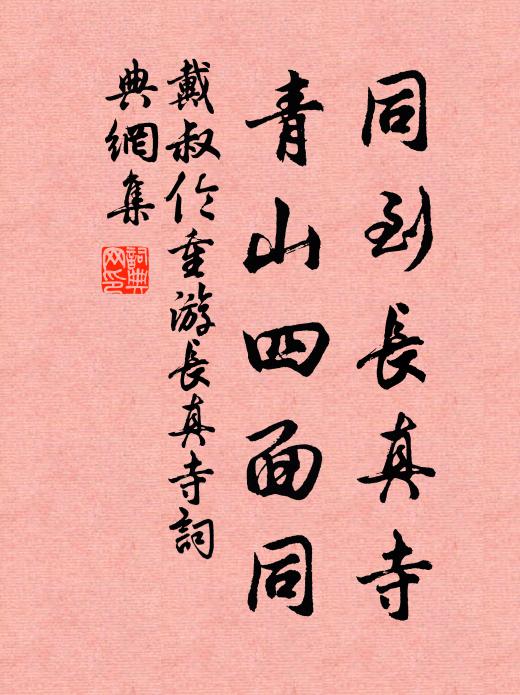 同到長真寺
青山四面同
戴叔伦重游長真寺詞
典網集
詞典网印